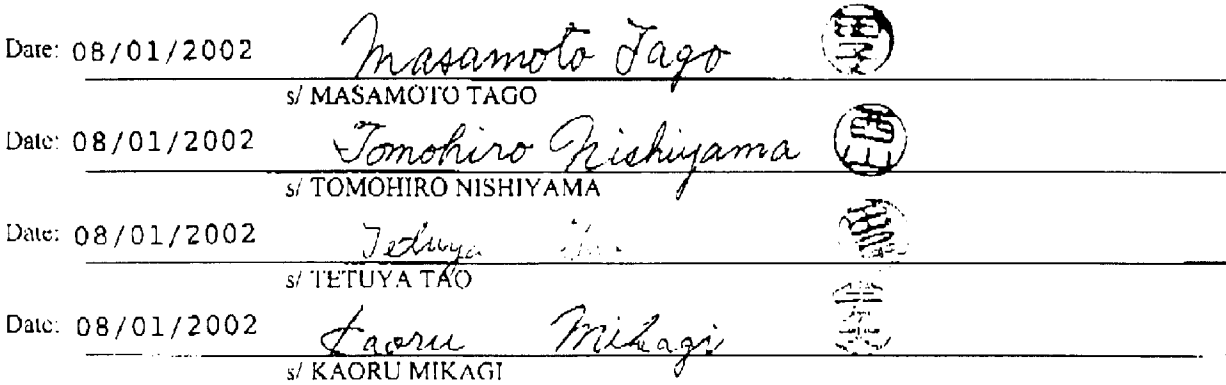 Date: 08/01/2002 Masamoto Tago
s/ MASAMOTO TAGO
Date: 08/01/2002 Tomohiro Nishiyama 西山
s/ TOMOHIRO NISHIYAMA
Date: 08/01/2002 Tetuya
s/ TETUYA TAO
Date: 08/01/2002 Kaoru Mikagi
s/ KAORU MIKAGI